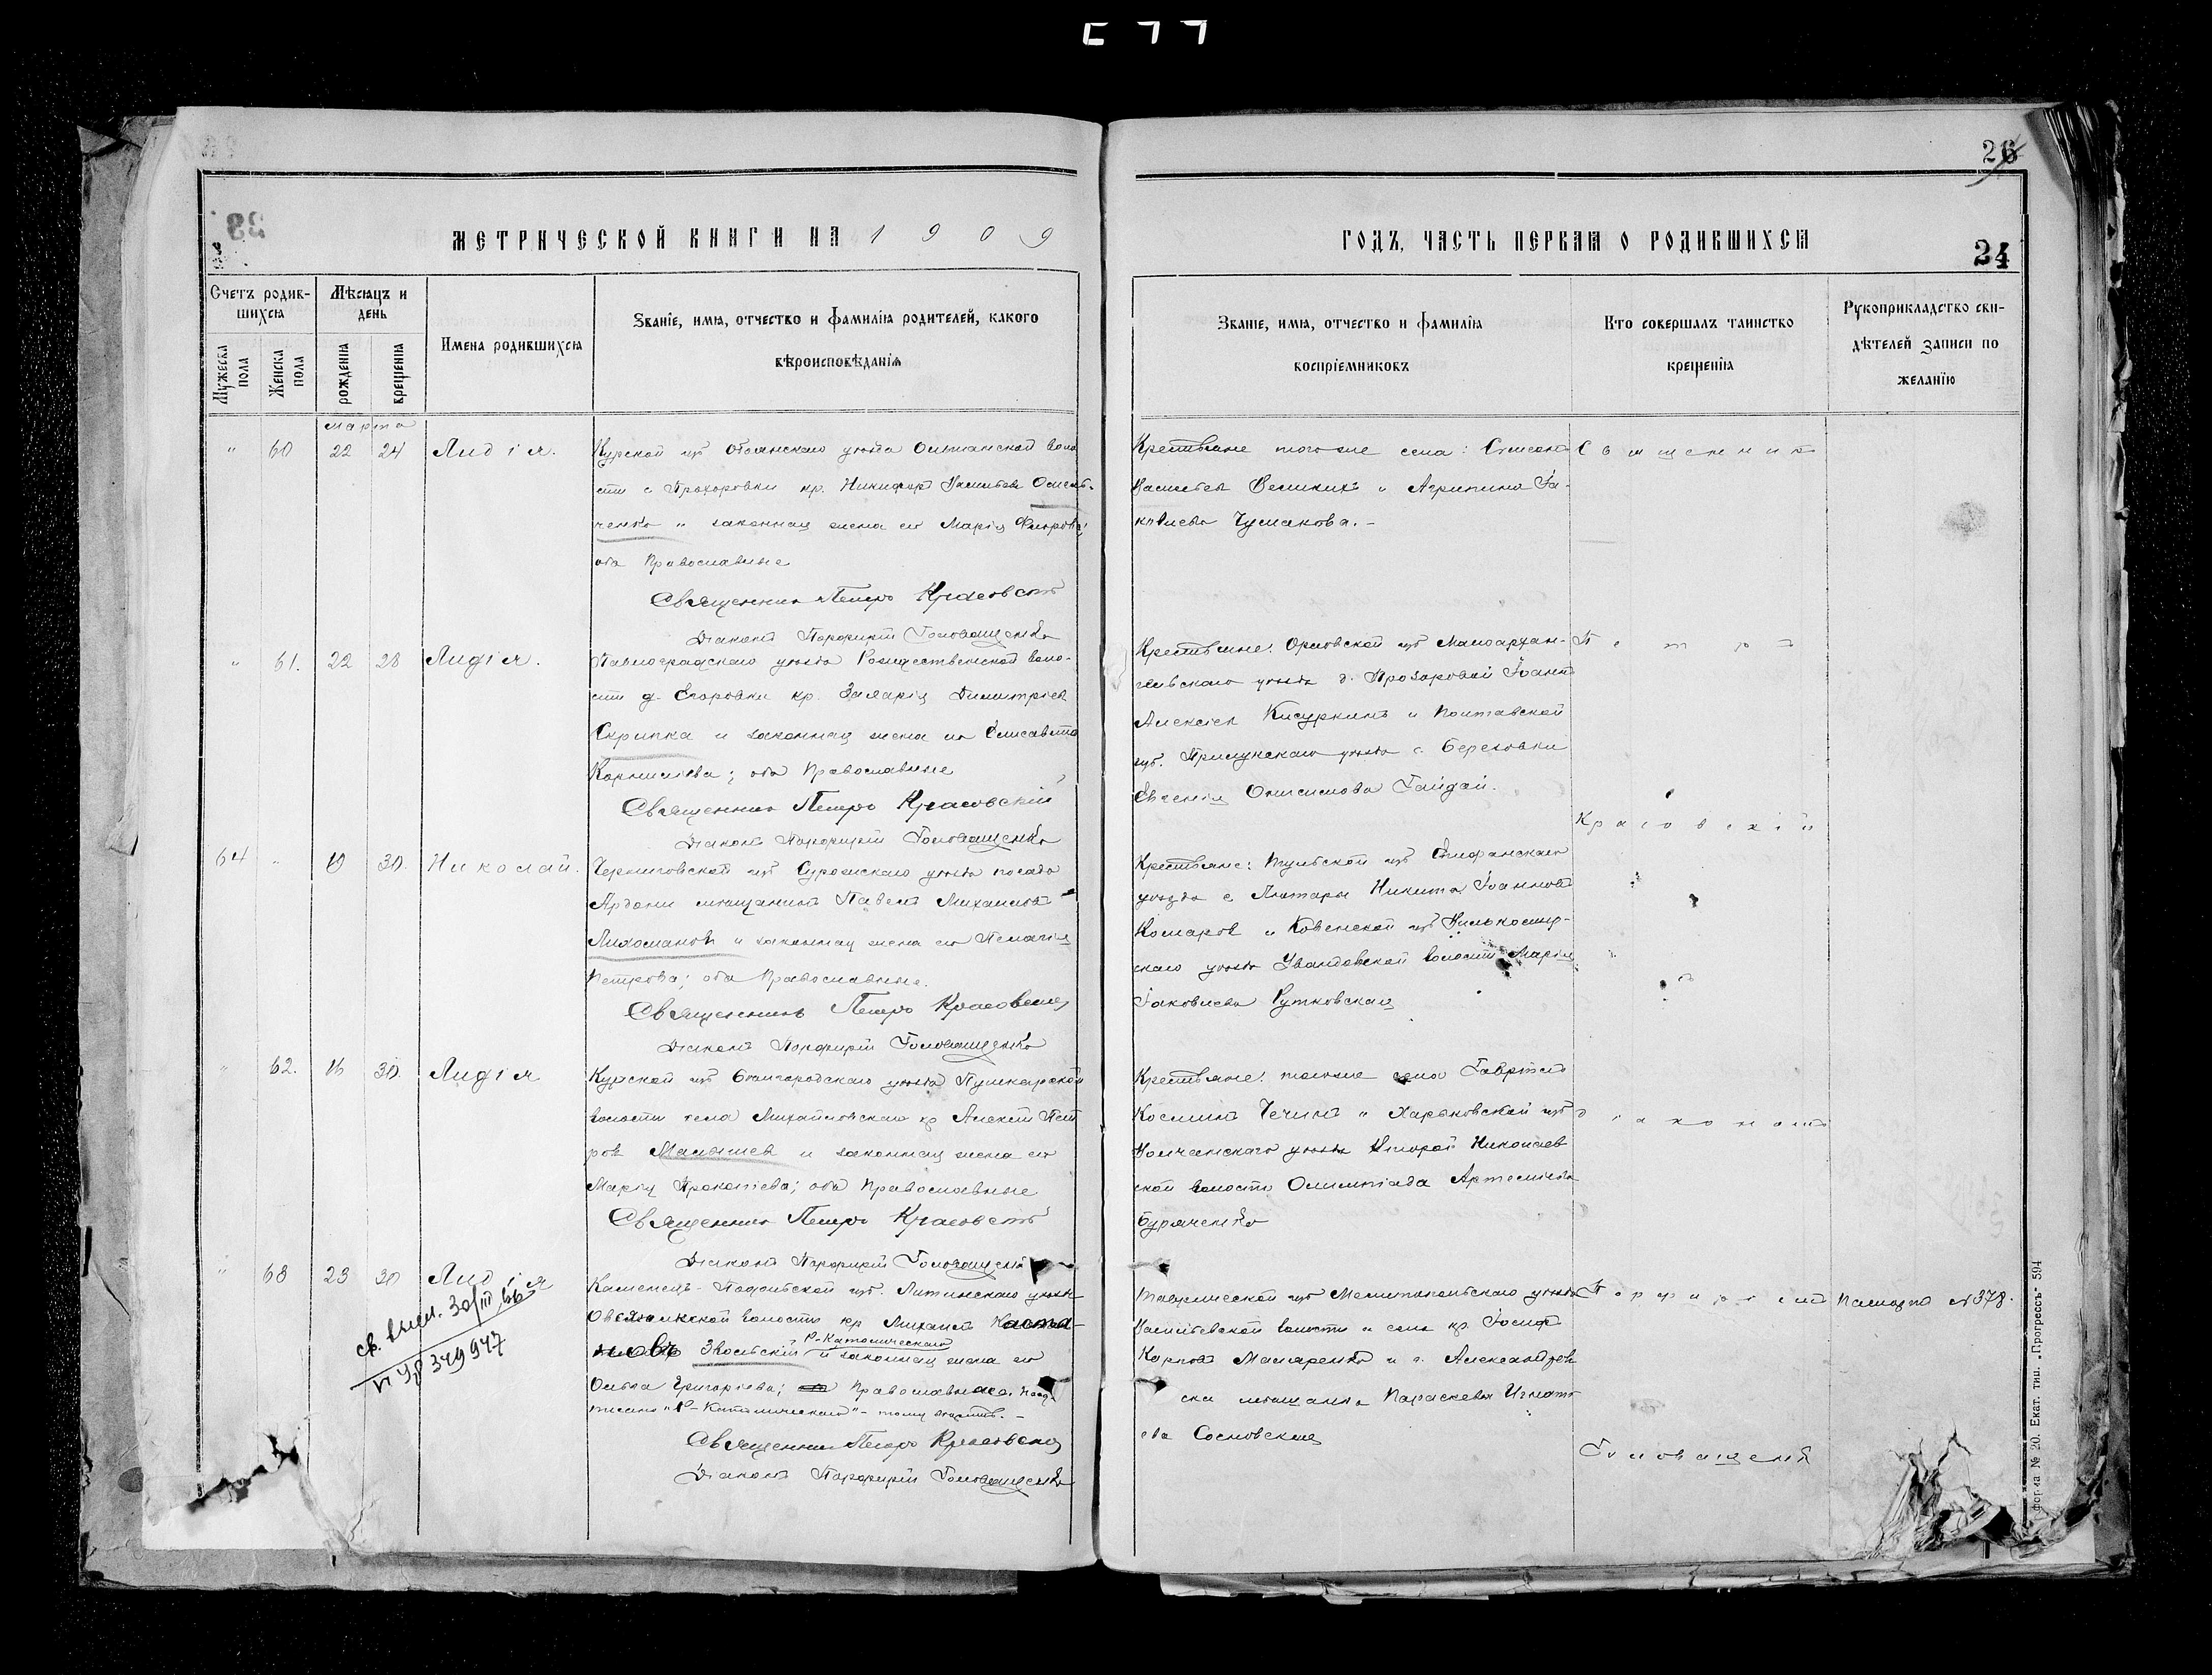 МЕТРИЧЕСКОЙ КНИГИ НА 1909
Счетъ родив-
шихся
Мѣсяцъ и
день
Имена родившихся
Званіе, имя, отчество и фамилія родителей, какого
вѣроисповѣданія
Мужеска
пола
Женска
пола
рожденія
крещенія
Марта
" 60 22 24 Лидія.
Курской губ Обоянскаго уѣзда
с Прохоровки кр. Никифоръ Васильевъ
ченко и законная жена его Марія
оба Православные
Священникъ Петръ Красовскій
Діаконъ Порфирій Головащенко
" 61. 22 28 Лидія.
Павлоградскаго уѣзда Рождественской воло-
сти д. Егоровки кр. Димитріевъ
Скрипка и законная жена его Елисавета
Корниліева; оба Православные
Священникъ Петръ Красовскій
Діаконъ Порфирій Головащенко
64 " 30. Николай.
Черниговской губ Суражскаго уѣзда посада
Ардони мѣщанинъ Павелъ Михаиловъ
Лихомановъ и законная жена его Пелагія
Петрова; оба Православные.
Священникъ Петръ Красовскій
Діаконъ Порфирій Головащенко
" 62. 16 30. Лидія
Курской губ Бѣлгородскаго уѣзда Пушкарской
волости села Михайловскаго кр Алексѣй Пет
ровъ Малышев и законная жена его
Марія Прокопіева; оба Православные
Священникъ Петръ Красовскій
Діаконъ Порфирій Головащенко
" 63 23 30 Лидія
св. выд. 30/III 66
VI УР 349947
Каменецъ-Подольской губ. Литинскаго уѣзда
волости кр Михаилъ
Р-Католическаго
и законная жена его
Ольга Григоріева; Православнаго. Над-
писано "Р-Католическаго" - тому вѣрить. -
Священникъ Петръ Красовскій
Діаконъ Порфирій Головащенко
26
ГОДЪ, ЧАСТЬ ПЕРВАЯ О РОДИВШИХСЯ
24
Званіе, имя, отчество и фамилія
воспріемниковъ
Кто совершалъ таинство
крещенія
Рукоприкладство сви-
дѣтелей записи по
желанію
Крестьяне того же села: Симеонъ
Васильевъ Великихъ и Агрипина Іа-
ковлева Чумакова. -
Священникъ
Крестьяне: Орловской губ Малоархан-
гельскаго уѣзда д. Прозоровой Іоаннъ
Алексіевъ Кисуркинъ и Полтавской
губ. Прилукскаго уѣзда с. Березовки
Евгенія Онисимова Гайдай.
Петръ
Красовскій
Крестьяне: Тульской губ Епифанскаго
уѣзда с Никита Іоанновъ
Комаров и Ковенской губ Вилькомир-
скаго уѣзда волости Марія
Іаковлева Рутковская
и
съ
Крестьяне: того же села Гавріилъ
Косминъ Чечинъ и Харьковской губ
Волчанскаго уѣзда Второй Николаев
ской волости Олимпіада Артеміева
Буряченко
діакономъ
Таврической губ Мелитопольскаго уѣзда
Васильевской волости и села кр. Іосифъ
Карповъ Макаренко и г. Александров
ска мѣщанка Параскева Игнать
ева Сосновская
Порфиріемъ
Головащенко
Паспортъ № 378.
форма № 20. Екат. тип. „Прогрессъ" 594